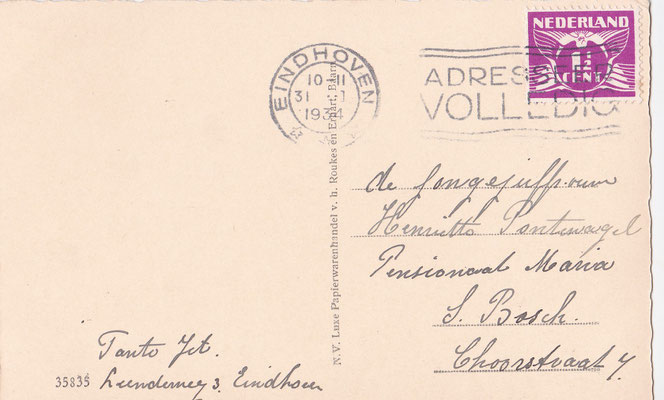 NEDERLAND
1½
CENT
EINDHOVEN
10-11
31 1
1934
ADRESSEER
VOLLEDIG
N.V. Luxe Papierwarenhandel v. h. Roukes en Erhart, Baarn
de Jongejuffrouw
Henriette Pontewagel
Pensionaat Maria
S. Bosch.
Choorstraat 7
Tante Jet.
Leenderweg 3. Eindhoven
35835